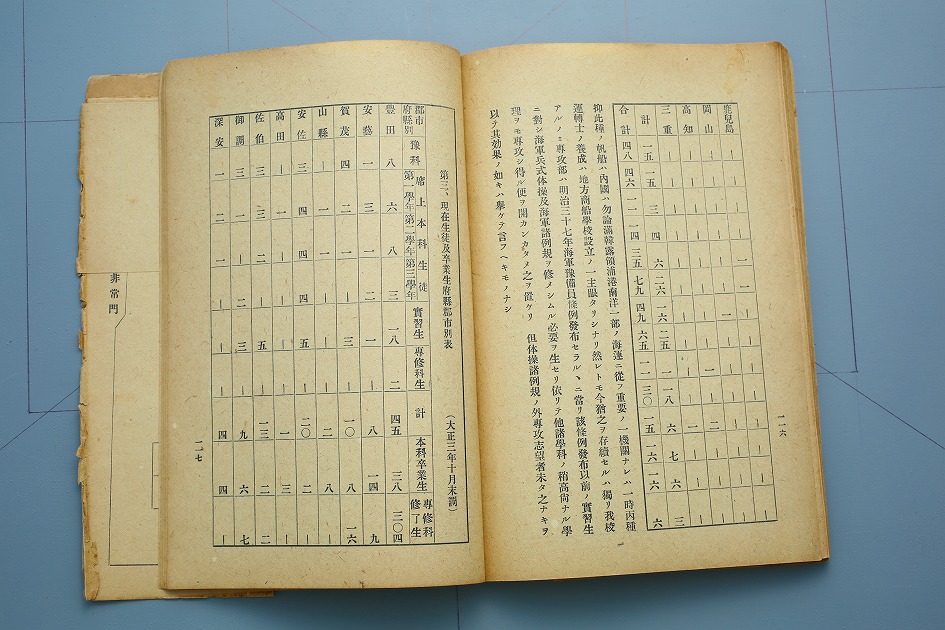 鹿兒島 ｜ ｜ ｜ ｜ 一 一 ｜ ｜ ｜ ｜ ｜ ｜ ｜ ｜
岡山 ｜ ｜ ｜ ｜ ｜ ｜ 一 ｜ ｜ ｜ ｜ ｜ ｜ ｜
高知 ｜ ｜ ｜ ｜ ｜ ｜ ｜ ｜ 一 ｜ 二 ｜ ｜ ｜
三重 ｜ ｜ ｜ ｜ ｜ ｜ ｜ ｜ ｜ ｜ 一 ｜ ｜ ｜
計 一五 一五 三 四 六 二六 一六 二五 一 一八 六 七 六 三
合計 四八 四六 一一 一四 三五 七九 四九 六五 一一 三〇 一五 一六 一六 六
抑此種ノ帆船ハ內國ハ勿論滿韓露領浦港南洋一部ノ海運ニ從フ重要ノ一機關ナレハ一時丙種
運轉士ノ養成ハ地方商船學校設立ノ一主眼タリシナリ然レトモ今猶之ヲ存續セルハ獨リ我校
アルノミ專攻部ハ明治二十七年海軍豫備員條例發布セラルヽニ當リ該條例發布以前ノ實習生
ニ對シ海軍兵式体操及海軍諸例規ヲ修メシムル必要ヲ生セリ依リテ他諸學科ノ稍高尙ナル學
理ヲモ專攻シ得ル便ヲ開カンカタメ之ヲ置ケリ 但体操諸例規ノ外專攻志望者未タ之ナキヲ
以テ其効果ノ如キハ擧ケテ言フヘキモノナシ
一一六
第三、現在生徒及卒業生府縣郡市別表 (大正三年十月末調)
郡市府縣別 豫科 席上本科生徒 第一學年 第二學年 第三學年 實習生 專修科生 計 本科卒業生 專修科修了生
豊田 八 六 八 三 一八 二 四五 三八 三〇四
安藝 一 三 一 二 一 ｜ 八 一四 九
賀茂 四 二 一 ｜ 三 ｜ 一〇 八 一六
山縣 ｜ 一 ｜ 一 ｜ ｜ 二 八 ｜
安佐 三 四 四 四 五 ｜ 二〇 二 ｜
高田 ｜ 一 ｜ ｜ ｜ ｜ 一 三 ｜
佐伯 三 三 二 ｜ 五 ｜ 一三 二 二
御調 三 一 ｜ 二 三 ｜ 九 六 七
深安 一 二 一 ｜ ｜ ｜ 四 四 ｜
一一七
非常門